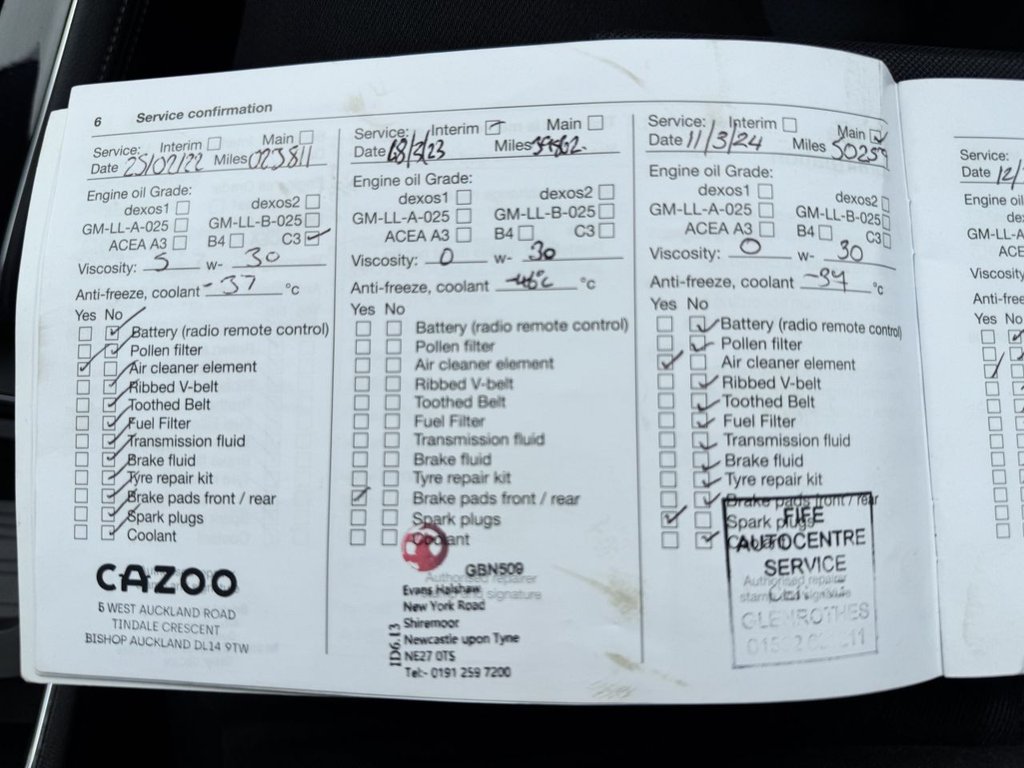 6 Service confirmation
Service: Interim Main
Date 25/02/22 Miles 023811
Engine oil Grade:
dexos1 dexos2
GM-LL-A-025 GM-LL-B-025
ACEA A3 B4 C3
Viscosity: 5 w- 30
Anti-freeze, coolant -37 °c
Yes No
Battery (radio remote control)
Pollen filter
Air cleaner element
Ribbed V-belt
Toothed Belt
Fuel Filter
Transmission fluid
Brake fluid
Tyre repair kit
Brake pads front / rear
Spark plugs
Coolant
CAZOO
5 WEST AUCKLAND ROAD
TINDALE CRESCENT
BISHOP AUCKLAND DL14 9TW
Service: Interim Main
Date Miles
Engine oil Grade:
dexos1 dexos2
GM-LL-A-025 GM-LL-B-025
ACEA A3 B4 C3
Viscosity: 0 w- 30
Anti-freeze, coolant °c
Yes No
Battery (radio remote control)
Pollen filter
Air cleaner element
Ribbed V-belt
Toothed Belt
Fuel Filter
Transmission fluid
Brake fluid
Tyre repair kit
Brake pads front / rear
Spark plugs
Coolant
GBN509
Authorised repairer
signature
Evans Halshaw
New York Road
Shiremoor
Newcastle upon Tyne
NE27 0TS
Tel:- 0191 259 7200
ID6.13
Service: Interim Main
Date 11/3/24 Miles 50259
Engine oil Grade:
dexos1 dexos2
GM-LL-A-025 GM-LL-B-025
ACEA A3 B4 C3
Viscosity: 0 w- 30
Anti-freeze, coolant -34 °c
Yes No
Battery (radio remote control)
Pollen filter
Air cleaner element
Ribbed V-belt
Toothed Belt
Fuel Filter
Transmission fluid
Brake fluid
Tyre repair kit
Brake pads front / rear
Spark plugs
FIFE
AUTOCENTRE
SERVICE
Authorised repairer
GLENROTHES
Service:
Date 12/
Engine oil
GM-LL-A
ACE
Viscosity
Anti-free
Yes No